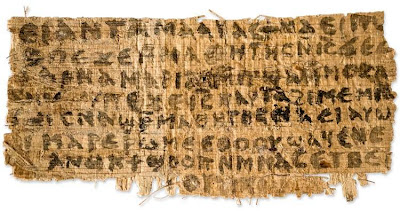 ⲉⲓ ⲁⲛ ⲧⲁⲙⲁⲁⲩ ⲁⲥϯ ⲛⲁⲉⲓ ⲡⲱ
ⲡⲉϫⲉ ⲙⲙⲁⲑⲏⲧⲏⲥ ⲛⲓⲥ ϫⲉ ⲥ
ⲁⲣⲛⲁ ⲙⲁⲣⲓⲁⲙ ⲙⲡϣⲁ ⲙⲙⲟⲥ ⲁ
ⲡⲉϫⲉ ⲓⲥ ⲛⲁⲩ ⲧⲁϩⲓⲙⲉ ⲙⲛ
ⲥⲛⲁϣⲣⲙⲁⲑⲏⲧⲏⲥ ⲛⲁⲉⲓ ⲁⲩⲱ
ⲓ ⲙⲁⲣⲉⲣⲱⲙⲉ ⲉⲑⲟⲟⲩ ϣⲁϥⲉⲛⲉ
ⲁⲛⲟⲕ ϯϣⲟⲟⲡ ⲛⲙⲙⲁⲥ ⲉⲧⲃⲉ